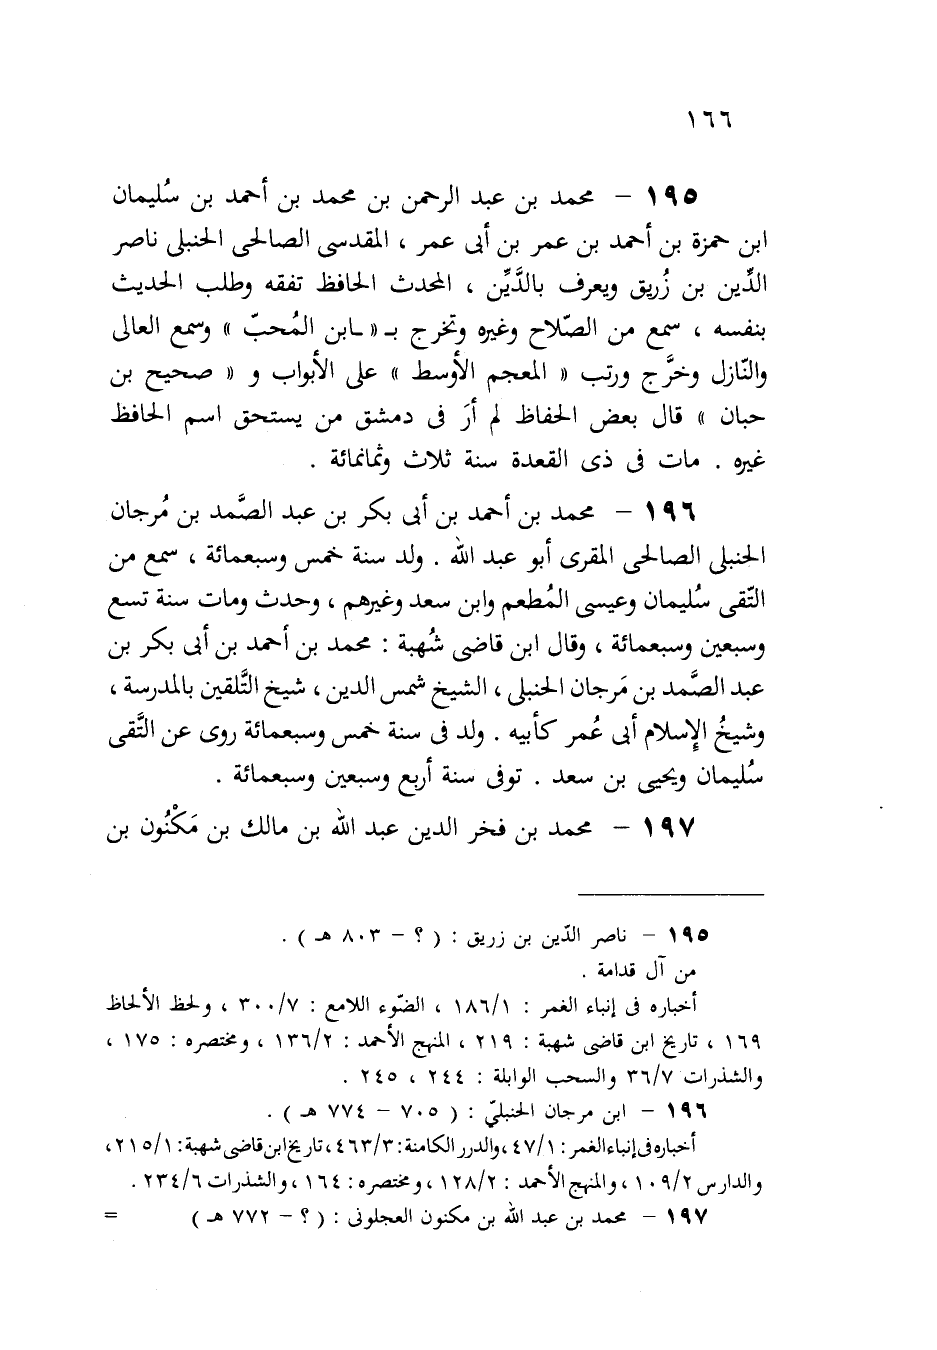 ١٦٦
١٩٥ – محمد بن عبد الرحمن بن محمد بن أحمد بن سُليمان
ابن حمزة بن أحمد بن عمر بن أبى عمر ، المقدسى الصالحى الحنبلى ناصر
الدِّين بن زُريق ويعرف بالدَّيِّن ، المحدث الحافظ تفقه وطلب الحديث
بنفسه ، سمع من الصّلاح وغيره وتخرج بـ « ـابن المُحبّ » وسمع العالى
والنّازل وخرَّج ورتب « المعجم الأوسط » على الأبواب و « صحيح بن
حبان » قال بعض الحفاظ لم أرَ فى دمشق من يستحق اسم الحافظ
غيره . مات فى ذى القعدة سنة ثلاث وثمانمائة .
١٩٦ – محمد بن أحمد بن أبى بكر بن عبد الصَّمد بن مُرجان
الحنبلى الصالحى المقرى أبو عبد الله . ولد سنة خمس وسبعمائة ، سمع من
التّقى سُليمان وعيسى المُطعم وابن سعد وغيرهم ، وحدث ومات سنة تسع
وسبعين وسبعمائة ، وقال ابن قاضى شُهبة : محمد بن أحمد بن أبى بكر بن
عبد الصَّمد بن مَرجان الحنبلى ، الشيخ شمس الدين ، شيخ التَّلقين بالمدرسة ،
وشيخُ الإِسلام أبى عُمر كأبيه . ولد فى سنة خمس وسبعمائة روى عن التَّقى
سُليمان ويحيى بن سعد . توفى سنة أربع وسبعين وسبعمائة .
١٩٧ – محمد بن فخر الدين عبد الله بن مالك بن مَكْنُون بن
١٩٥ – ناصر الدّين بن زريق : ( ؟ – ٨٠٣ هـ ) .
من آل قدامة .
أخباره فى إنباء الغمر : ١٨٦/١ ، الضّوء اللامع : ٣٠٠/٧ ، ولحظ الألحاظ
١٦٩ ، تاريخ ابن قاضى شهبة : ٢١٩ ، المنهج الأحمد : ١٣٦/٢ ، ومختصره : ١٧٥ ،
والشذرات ٣٦/٧ والسحب الوابلة : ٢٤٤ ، ٢٤٥ .
١٩٦ – ابن مرجان الحنبليّ : ( ٧٠٥ – ٧٧٤ هـ ) .
أخباره فى إنباء الغمر : ٤٧/١ ، والدرر الكامنة : ٤٦٣/٣ ، تاريخ ابن قاضى شهبة : ٢١٥/١ ،
والدارس ١٠٩/٢ ، والمنهج الأحمد : ١٢٨/٢ ، ومختصره : ١٦٤ ، والشذرات ٢٣٤/٦ .
١٩٧ – محمد بن عبد الله بن مكنون العجلونى : ( ؟ – ٧٧٢ هـ ) =